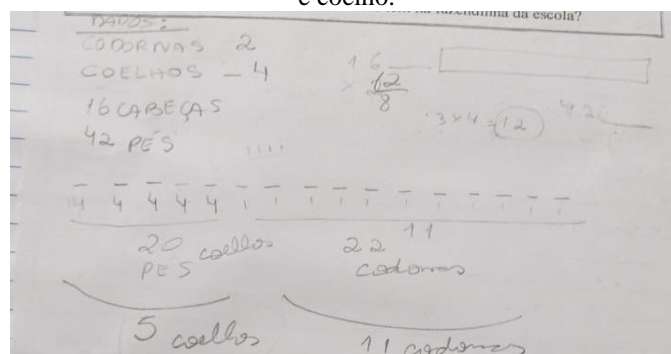 e coelho.
na fazendinha da escola?
DADOS:
CODORNAS 2
COELHOS - 4
16 CABEÇAS
42 PÉS
16
x 12
8
3x4=12
42
4 4 4 4 4
20 coelhos
PÉS
22
11
codornas
5 coelhos
11 codornas